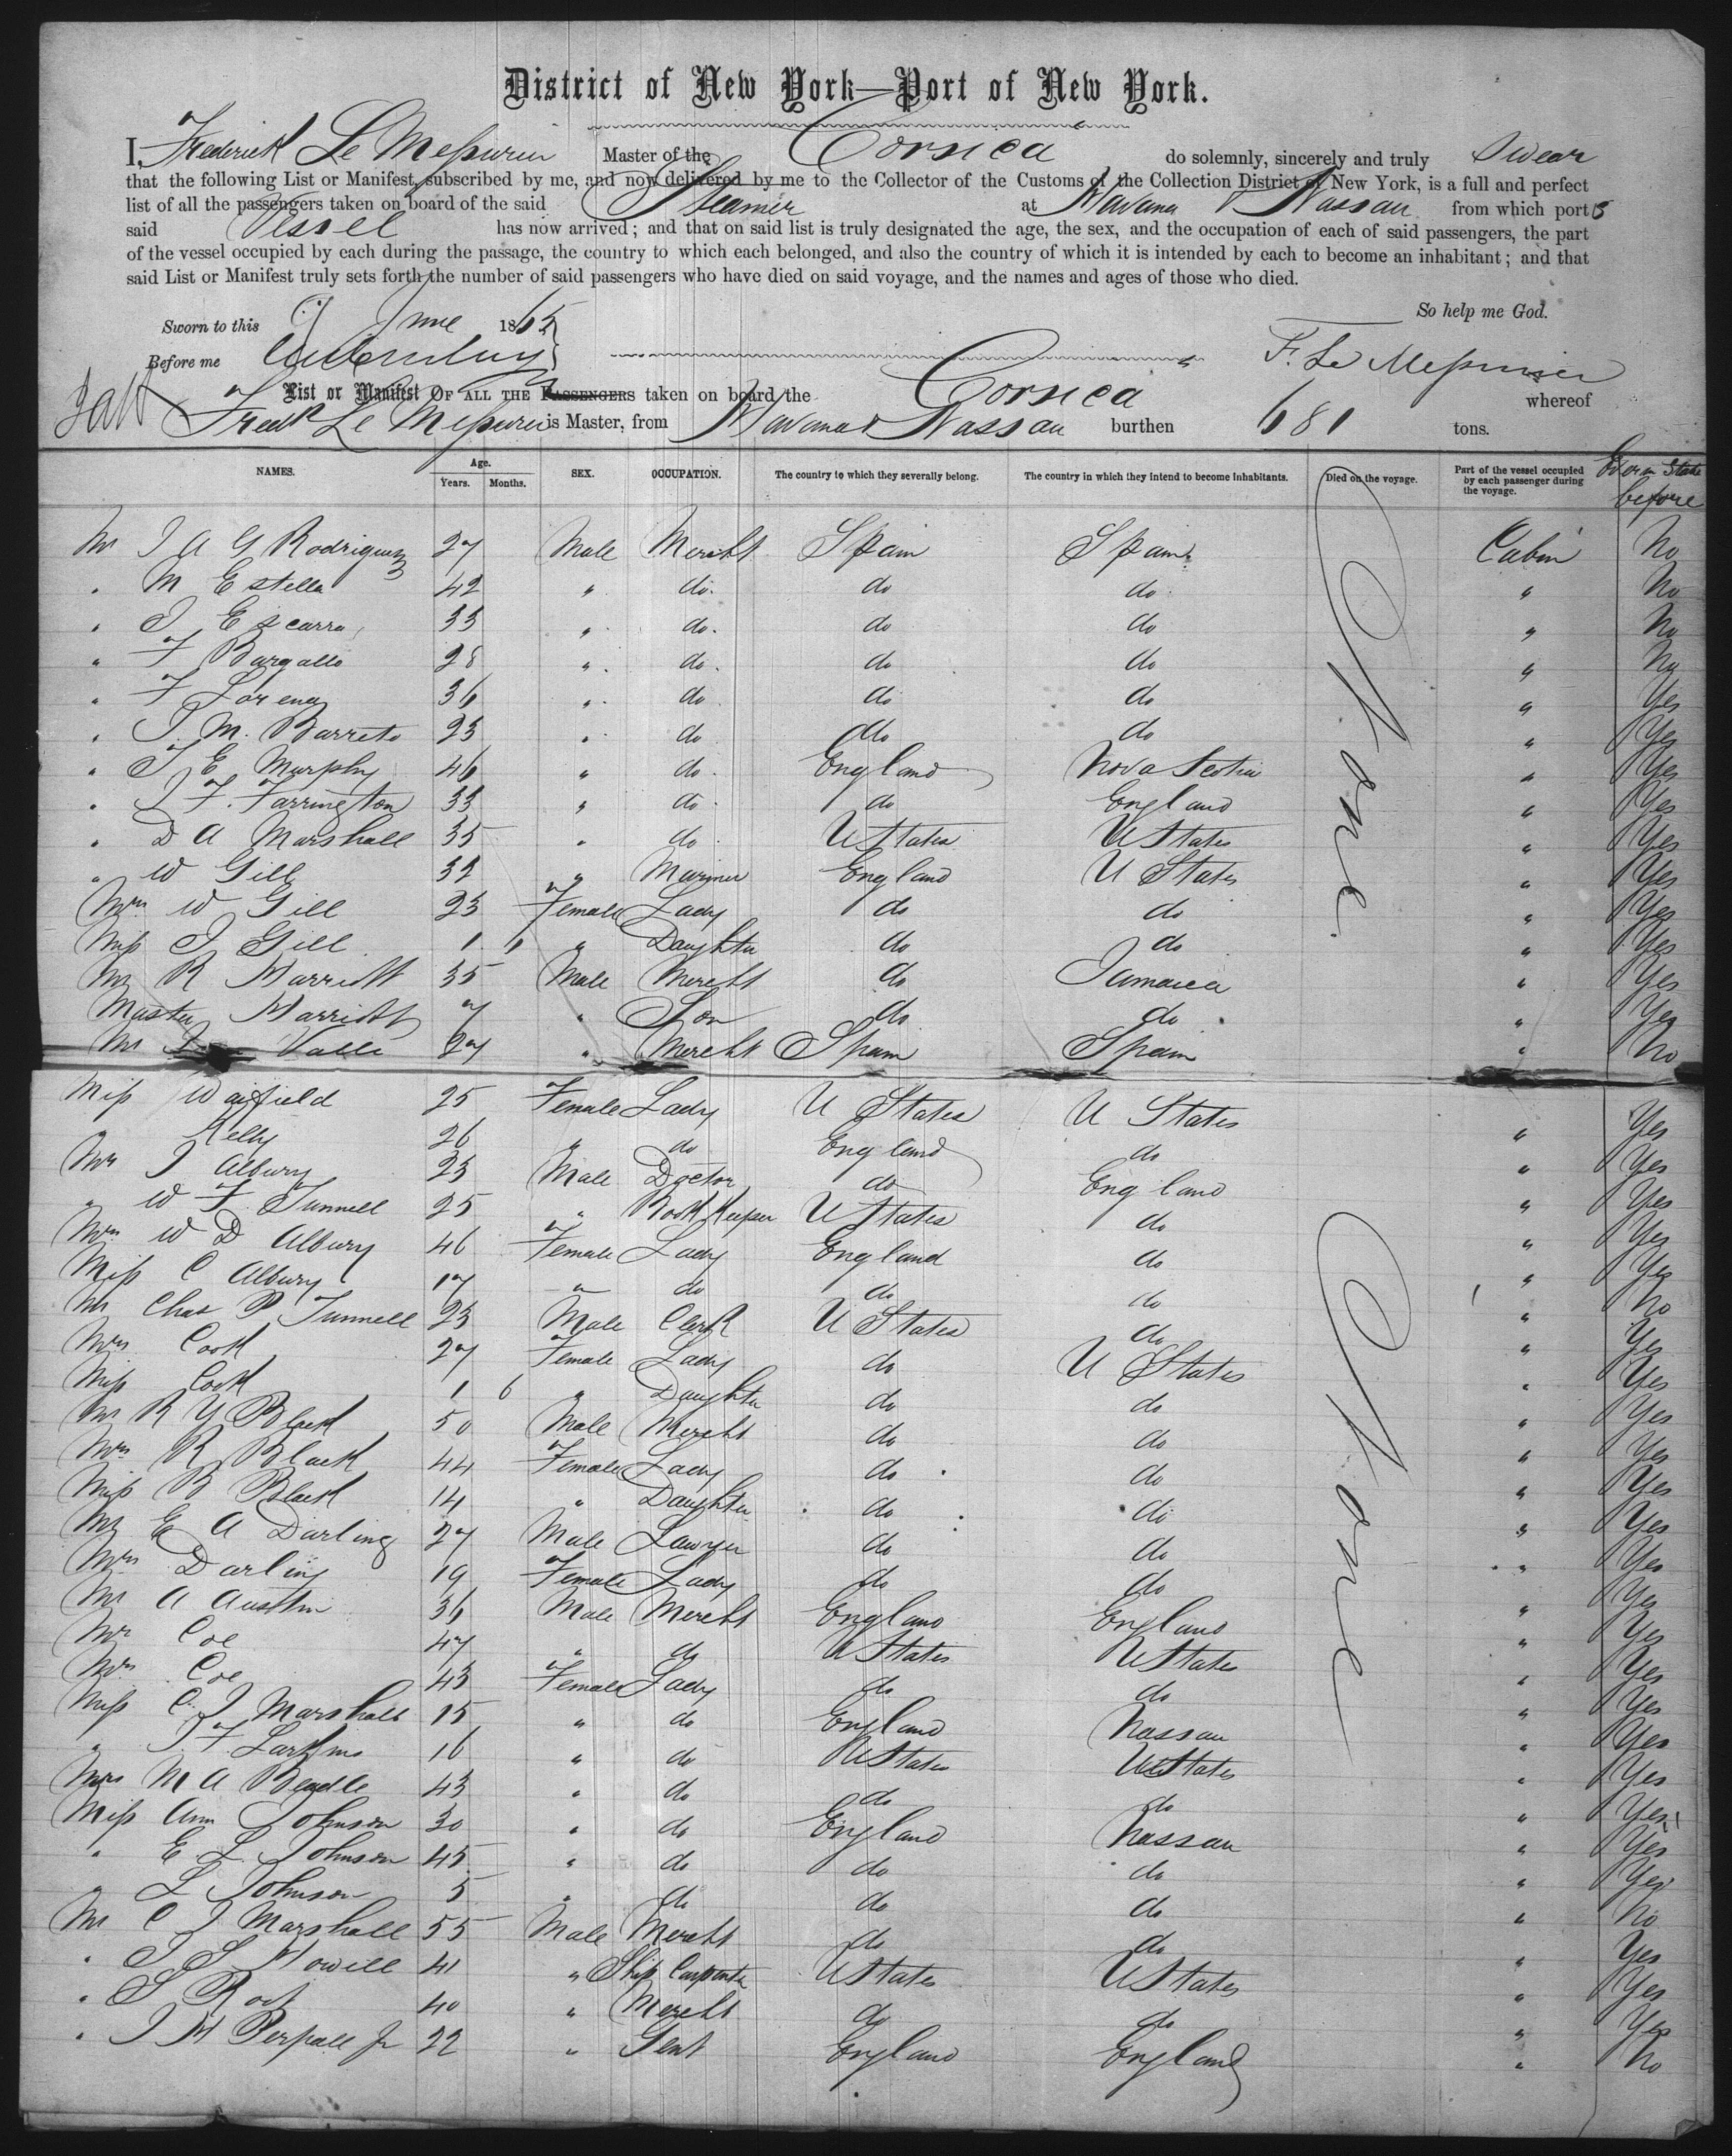 District of New York—Port of New York.
I, Frederick Le Mesurier Master of the Corsica do solemnly, sincerely and truly Swear
that the following List or Manifest, subscribed by me, and now delivered by me to the Collector of the Customs of the Collection District of New York, is a full and perfect
list of all the passengers taken on board of the said Steamer at Havana & Nassau from which ports
said Vessel has now arrived; and that on said list is truly designated the age, the sex, and the occupation of each of said passengers, the part
of the vessel occupied by each during the passage, the country to which each belonged, and also the country of which it is intended by each to become an inhabitant; and that
said List or Manifest truly sets forth the number of said passengers who have died on said voyage, and the names and ages of those who died.
So help me God.
Sworn to this June 1865
Before me
F. Le Mesurier
List or Manifest OF ALL THE PASSENGERS taken on board the Corsica whereof
Fredk Le Mesurier is Master, from Havana & Nassau burthen 681 tons.
NAMES. Age. Years. Months. SEX. OCCUPATION. The country to which they severally belong. The country in which they intend to become inhabitants. Died on the voyage. Part of the vessel occupied by each passenger during the voyage. Ever in State before
Mr J A G Rodriguez 27 Male Mercht Spain Spain Cabin No
" M Estella 42 " do. do do " No
" J Escarra 33 " do. do do " No
" F Bargallo 28 " do. do do " No
" F Lorenz 36 " do do do " Yes
" J. M. Barreto 23 " do do do " Yes
" J E Murphy 46 " do England Nova Scotia " Yes
" J F. Farrington 33 " do do England " Yes
" D A Marshall 35 " do U States U States " Yes
" W Gill 32 " Mariner England U States " Yes
Mrs W Gill 23 Female Lady do do " Yes
Miss J Gill 1 1 " Daughter do do " Yes
Mr R Harriott 35 Male Mercht do Jamaica " Yes
Master Harriott 7 " Son do do " Yes
Mr Valle 27 " Mercht Spain Spain " No
Miss Warfield 25 Female Lady U States U States " Yes
" Kelly 26 " do England do " Yes
Mr J Albury 23 Male Doctor do England " Yes
" W F Tunnell 25 " Book Keeper U States do " Yes
Mrs W D Albury 46 Female Lady England do " Yes
Miss C Albury 17 " do do do " No
Mr Chas P Tunnell 23 Male Clerk U States do " Yes
Mrs Cook 27 Female Lady do U States " Yes
Miss Cook 1 6 " Daughter do do " Yes
Mr R Y Black 50 Male Mercht do do " Yes
Mrs R Black 44 Female Lady do do " Yes
Miss B Black 14 " Daughter do do " Yes
Mr E A Darling 27 Male Lawyer do do " Yes
Mrs Darling 19 Female Lady do do " Yes
Mr A Austin 36 Male Mercht England England " Yes
Mr Coe 47 " do U States U States " Yes
Mrs Coe 43 Female Lady do do " Yes
Miss C. J Marshall 15 " do England Nassau " Yes
" J F Larkins 16 " do U States U States " Yes
Mrs M A Beadle 43 " do do do " Yes
Miss Ann Johnson 30 " do England Nassau " Yes
" E L Johnson 45 " do do do " Yes
" L Johnson 5 " do do do " No
Mr C J Marshall 55 Male Mercht do do " Yes
" J S Howill 41 " Ship Carpenter U States U States " Yes
" S Root 40 " Mercht do do " Yes
" J H Perpall Jr 22 " Gent England England " No
None
None